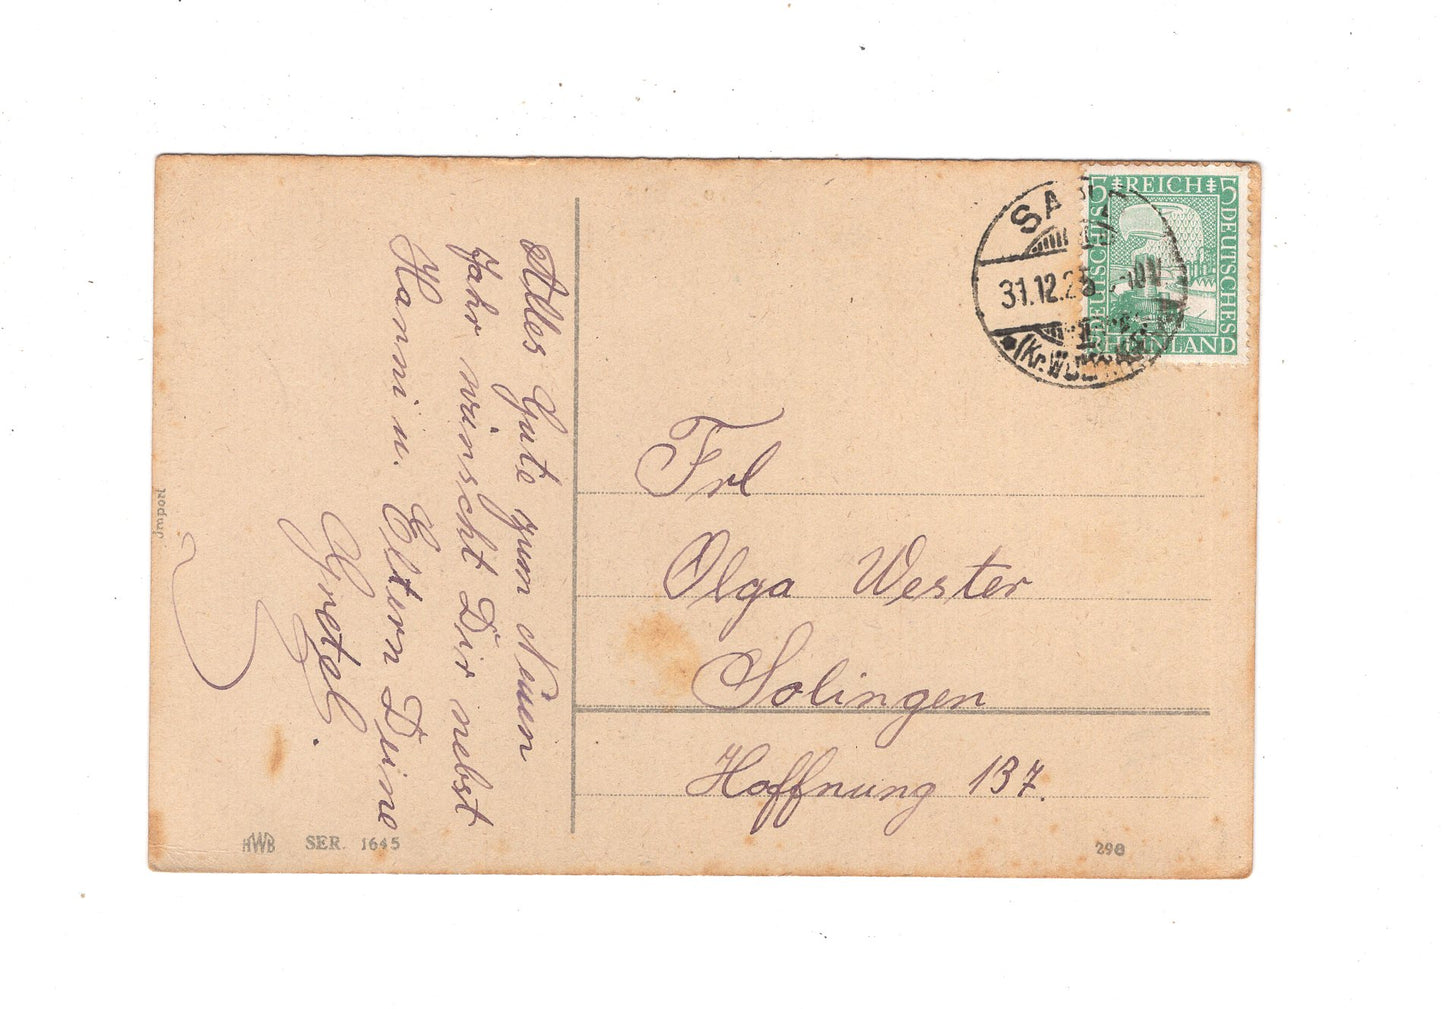 Alles Gute zum Neuen
Jahr wünscht Dir nebst
Hanni u. Eltern Deine
Gretel.
Frl
Olga Wester
Solingen
Hoffnung 137.
5 REICH 5
DEUTSCHES
DEUTSCHES
RHEINLAND
31.12.25
Import
HWB SER. 1645
298